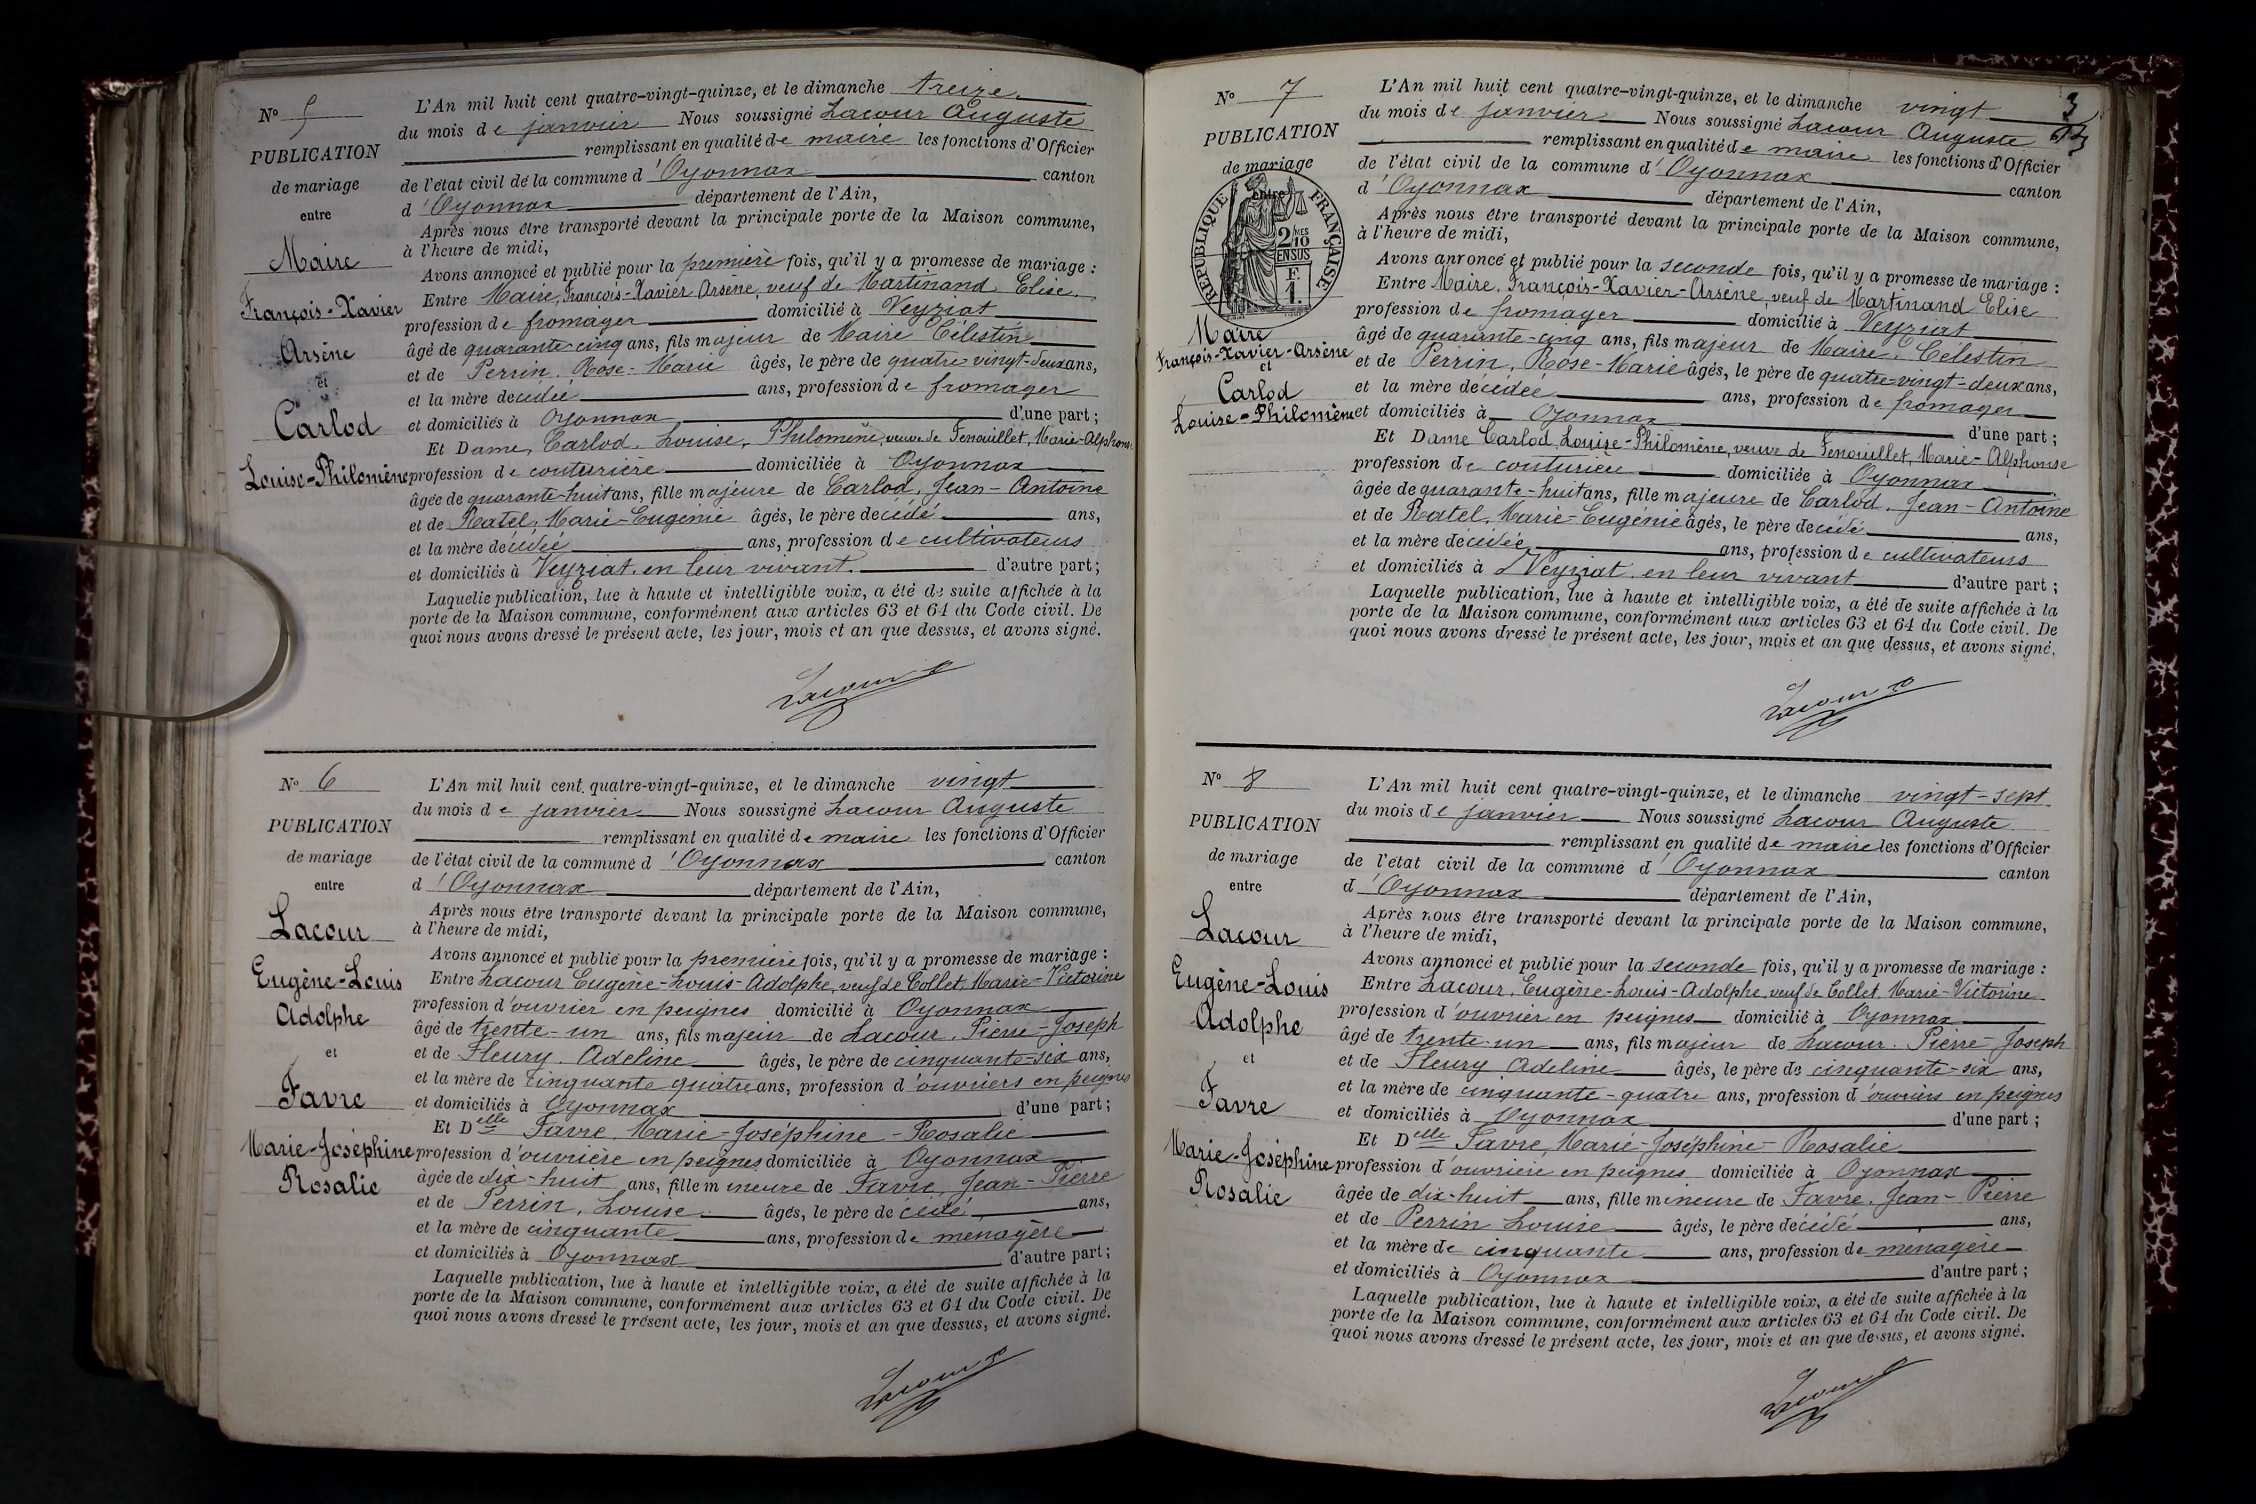 N° 5
PUBLICATION
de mariage
entre
Maire
François-Xavier
Arsène
et
Carlod
Louise-Philomène
L'An mil huit cent quatre-vingt-quinze, et le dimanche treize
du mois de janvier Nous soussigné Lacour Auguste
remplissant en qualité de maire les fonctions d'Officier
de l'état civil de la commune d'Oyonnax canton
d'Oyonnax département de l'Ain,
Après nous être transporté devant la principale porte de la Maison commune,
à l'heure de midi,
Avons annoncé et publié pour la première fois, qu'il y a promesse de mariage :
Entre Maire, François-Xavier Arsène, veuf de Martinand Elise
profession de fromager domicilié à Veyziat
âgé de quarante-cinq ans, fils majeur de Maire Célestin
et de Perrin, Rose-Marie âgés, le père de quatre-vingt-deux ans,
et la mère décédée ans, profession de fromager
et domiciliés à Oyonnax d'une part ;
Et Dame, Carlod, Louise, Philomène, veuve de Fenouillet, Marie-Alphonse
profession de couturière domiciliée à Oyonnax
âgée de quarante-huit ans, fille majeure de Carlod, Jean-Antoine
et de Ratel, Marie-Eugénie âgés, le père décédé ans,
et la mère décédée ans, profession de cultivateurs
et domiciliés à Veyziat en leur vivant d'autre part ;
Laquelle publication, lue à haute et intelligible voix, a été de suite affichée à la
porte de la Maison commune, conformément aux articles 63 et 64 du Code civil. De
quoi nous avons dressé le présent acte, les jour, mois et an que dessus, et avons signé.
Lacour
N° 6
PUBLICATION
de mariage
entre
Lacour
Eugène-Louis
Adolphe
et
Favre
Marie-Joséphine
Rosalie
L'An mil huit cent quatre-vingt-quinze, et le dimanche vingt
du mois de janvier Nous soussigné Lacour Auguste
remplissant en qualité de maire les fonctions d'Officier
de l'état civil de la commune d'Oyonnax canton
d'Oyonnax département de l'Ain,
Après nous être transporté devant la principale porte de la Maison commune,
à l'heure de midi,
Avons annoncé et publié pour la première fois, qu'il y a promesse de mariage :
Entre Lacour Eugène-Louis-Adolphe, veuf de Collet Marie-Victorine
profession d'ouvrier en peignes domicilié à Oyonnax
âgé de trente-un ans, fils majeur de Lacour, Pierre-Joseph
et de Fleury Adeline âgés, le père de cinquante-six ans,
et la mère de cinquante quatre ans, profession d'ouvriers en peignes
et domiciliés à Oyonnax d'une part ;
Et Delle Favre, Marie-Joséphine-Rosalie
profession d'ouvrière en peignes domiciliée à Oyonnax
âgée de dix-huit ans, fille mineure de Favre, Jean-Pierre
et de Perrin, Louise âgés, le père décédé ans,
et la mère de cinquante ans, profession de ménagère
et domiciliés à Oyonnax d'autre part ;
Laquelle publication, lue à haute et intelligible voix, a été de suite affichée à la
porte de la Maison commune, conformément aux articles 63 et 64 du Code civil. De
quoi nous avons dressé le présent acte, les jour, mois et an que dessus, et avons signé.
Lacour
3
N° 7
PUBLICATION
de mariage
entre
RÉPUBLIQUE FRANÇAISE
2/10
EN SUS
F.
1.
Maire
François-Xavier-Arsène
et
Carlod
Louise-Philomène
L'An mil huit cent quatre-vingt-quinze, et le dimanche vingt
du mois de janvier Nous soussigné Lacour Auguste
remplissant en qualité de maire les fonctions d'Officier
de l'état civil de la commune d'Oyonnax canton
d'Oyonnax département de l'Ain,
Après nous être transporté devant la principale porte de la Maison commune,
à l'heure de midi,
Avons annoncé et publié pour la seconde fois, qu'il y a promesse de mariage :
Entre Maire, François-Xavier-Arsène, veuf de Martinand Elise
profession de fromager domicilié à Veyziat
âgé de quarante-cinq ans, fils majeur de Maire, Célestin
et de Perrin, Rose-Marie âgés, le père de quatre-vingt-deux ans,
et la mère décédée ans, profession de fromager
et domiciliés à Oyonnax d'une part ;
Et Dame Carlod, Louise-Philomène, veuve de Fenouillet, Marie-Alphonse
profession de couturière domiciliée à Oyonnax
âgée de quarante-huit ans, fille majeure de Carlod, Jean-Antoine
et de Ratel, Marie-Eugénie âgés, le père décédé ans,
et la mère décédée ans, profession de cultivateurs
et domiciliés à Veyziat en leur vivant d'autre part ;
Laquelle publication, lue à haute et intelligible voix, a été de suite affichée à la
porte de la Maison commune, conformément aux articles 63 et 64 du Code civil. De
quoi nous avons dressé le présent acte, les jour, mois et an que dessus, et avons signé.
Lacour
N° 8
PUBLICATION
de mariage
entre
Lacour
Eugène-Louis
Adolphe
et
Favre
Marie-Joséphine
Rosalie
L'An mil huit cent quatre-vingt-quinze, et le dimanche vingt-sept
du mois de janvier Nous soussigné Lacour Auguste
remplissant en qualité de maire les fonctions d'Officier
de l'état civil de la commune d'Oyonnax canton
d'Oyonnax département de l'Ain,
Après nous être transporté devant la principale porte de la Maison commune,
à l'heure de midi,
Avons annoncé et publié pour la seconde fois, qu'il y a promesse de mariage :
Entre Lacour, Eugène-Louis-Adolphe, veuf de Collet, Marie-Victorine
profession d'ouvrier en peignes domicilié à Oyonnax
âgé de trente-un ans, fils majeur de Lacour, Pierre-Joseph
et de Fleury Adeline âgés, le père de cinquante-six ans,
et la mère de cinquante-quatre ans, profession d'ouvriers en peignes
et domiciliés à Oyonnax d'une part ;
Et Delle Favre, Marie-Joséphine-Rosalie
profession d'ouvrière en peignes domiciliée à Oyonnax
âgée de dix-huit ans, fille mineure de Favre, Jean-Pierre
et de Perrin Louise âgés, le père décédé ans,
et la mère de cinquante ans, profession de ménagère
et domiciliés à Oyonnax d'autre part ;
Laquelle publication, lue à haute et intelligible voix, a été de suite affichée à la
porte de la Maison commune, conformément aux articles 63 et 64 du Code civil. De
quoi nous avons dressé le présent acte, les jour, mois et an que dessus, et avons signé.
Lacour